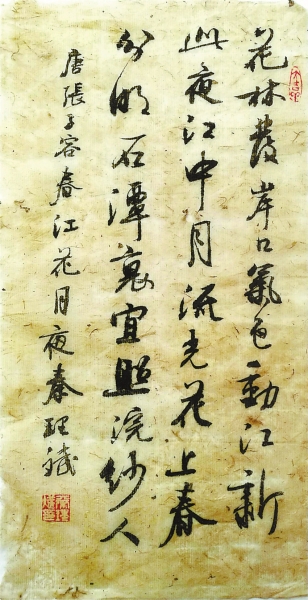 花林發岸口氣色動江新
此夜江中月流光花上春
分明石潭裏宜照浣紗人
唐張子容春江花月夜秦理斌